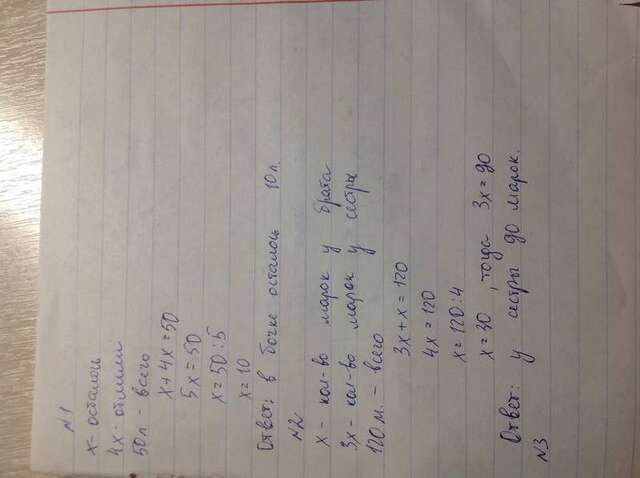 №1
x - осталось
4x - отлили
50 л - всего
x + 4x = 50
5x = 50
x = 50 : 5
x = 10
Ответ: в бочке осталось 10 л.
№2
x - кол-во марок у брата
3x - кол-во марок у сестры
120 м. - всего
3x + x = 120
4x = 120
x = 120 : 4
x = 30, тогда 3x = 90
Ответ: у сестры 90 марок.
№3